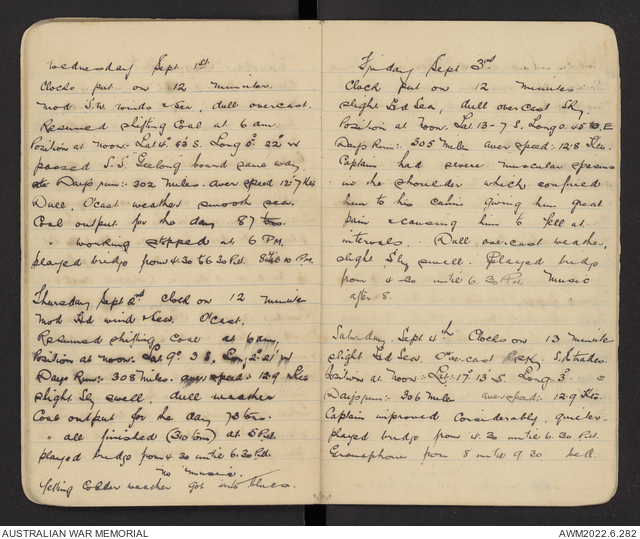 Wednesday Sept 1st
Clocks put on 12 minutes
mod S.W. winds & Sea, dull overcast.
Resumed shifting Coal at 6 am.
Position at noon. Lat 4° 53 S. Long 5° 22' W
passed S.S. Geelong bound same way.
Days run: 302 miles. aver speed 12.7 Kts
Dull, O'cast weather smooth sea.
Coal output for the day 87 tons.
" working stopped at 6 P.M.
played bridge from 4.30 to 6.30 P.M. 8 to 10 P.M.
Thursday Sept 2nd Clock on 12 minutes
mod Hd wind & Sea. O'cast.
Resumed shifting Coal at 6 am,
Position at noon. Lat 9° 3 S. Long 2° 21' W
Days Run: 308 miles. aver speed: 12.9 Kts
slight Sly swell, dull weather
Coal output for the day 73 tons.
" all finished (310 tons) at 5 P.M.
played bridge from 4.30 until 6.30 P.M.
no music.
Getting Colder weather got into blues.
Friday Sept 3rd
Clock put on 12 minutes
slight Hd Sea, dull overcast Sky.
Position at Noon: Lat. 13-7 S. Long 0.45 E
Days Run: 305 miles aver speed: 12.8 Kts.
Captain had severe muscular spasms
in the shoulder which confined
him to his cabin giving him great
pain & causing him to yell at
intervals. Dull overcast weather,
slight Sly swell. Played bridge
from 4.30 until 6.30 P.M. Music
after 8.
Saturday. Sept 4th Clocks on 13 minutes
slight Hd Sea Overcast Sky. S.E. trades.
Position at Noon: Lat: 17° 13' S. Long 3° "
Days run: 306 miles aver speed: 12.9 Kts.
Captain improved Considerably, quieter.
played bridge from 4.30 until 6.30 P.M.
Gramophone from 8 until 9.30 bed
AUSTRALIAN WAR MEMORIAL
AWM2022.6.282